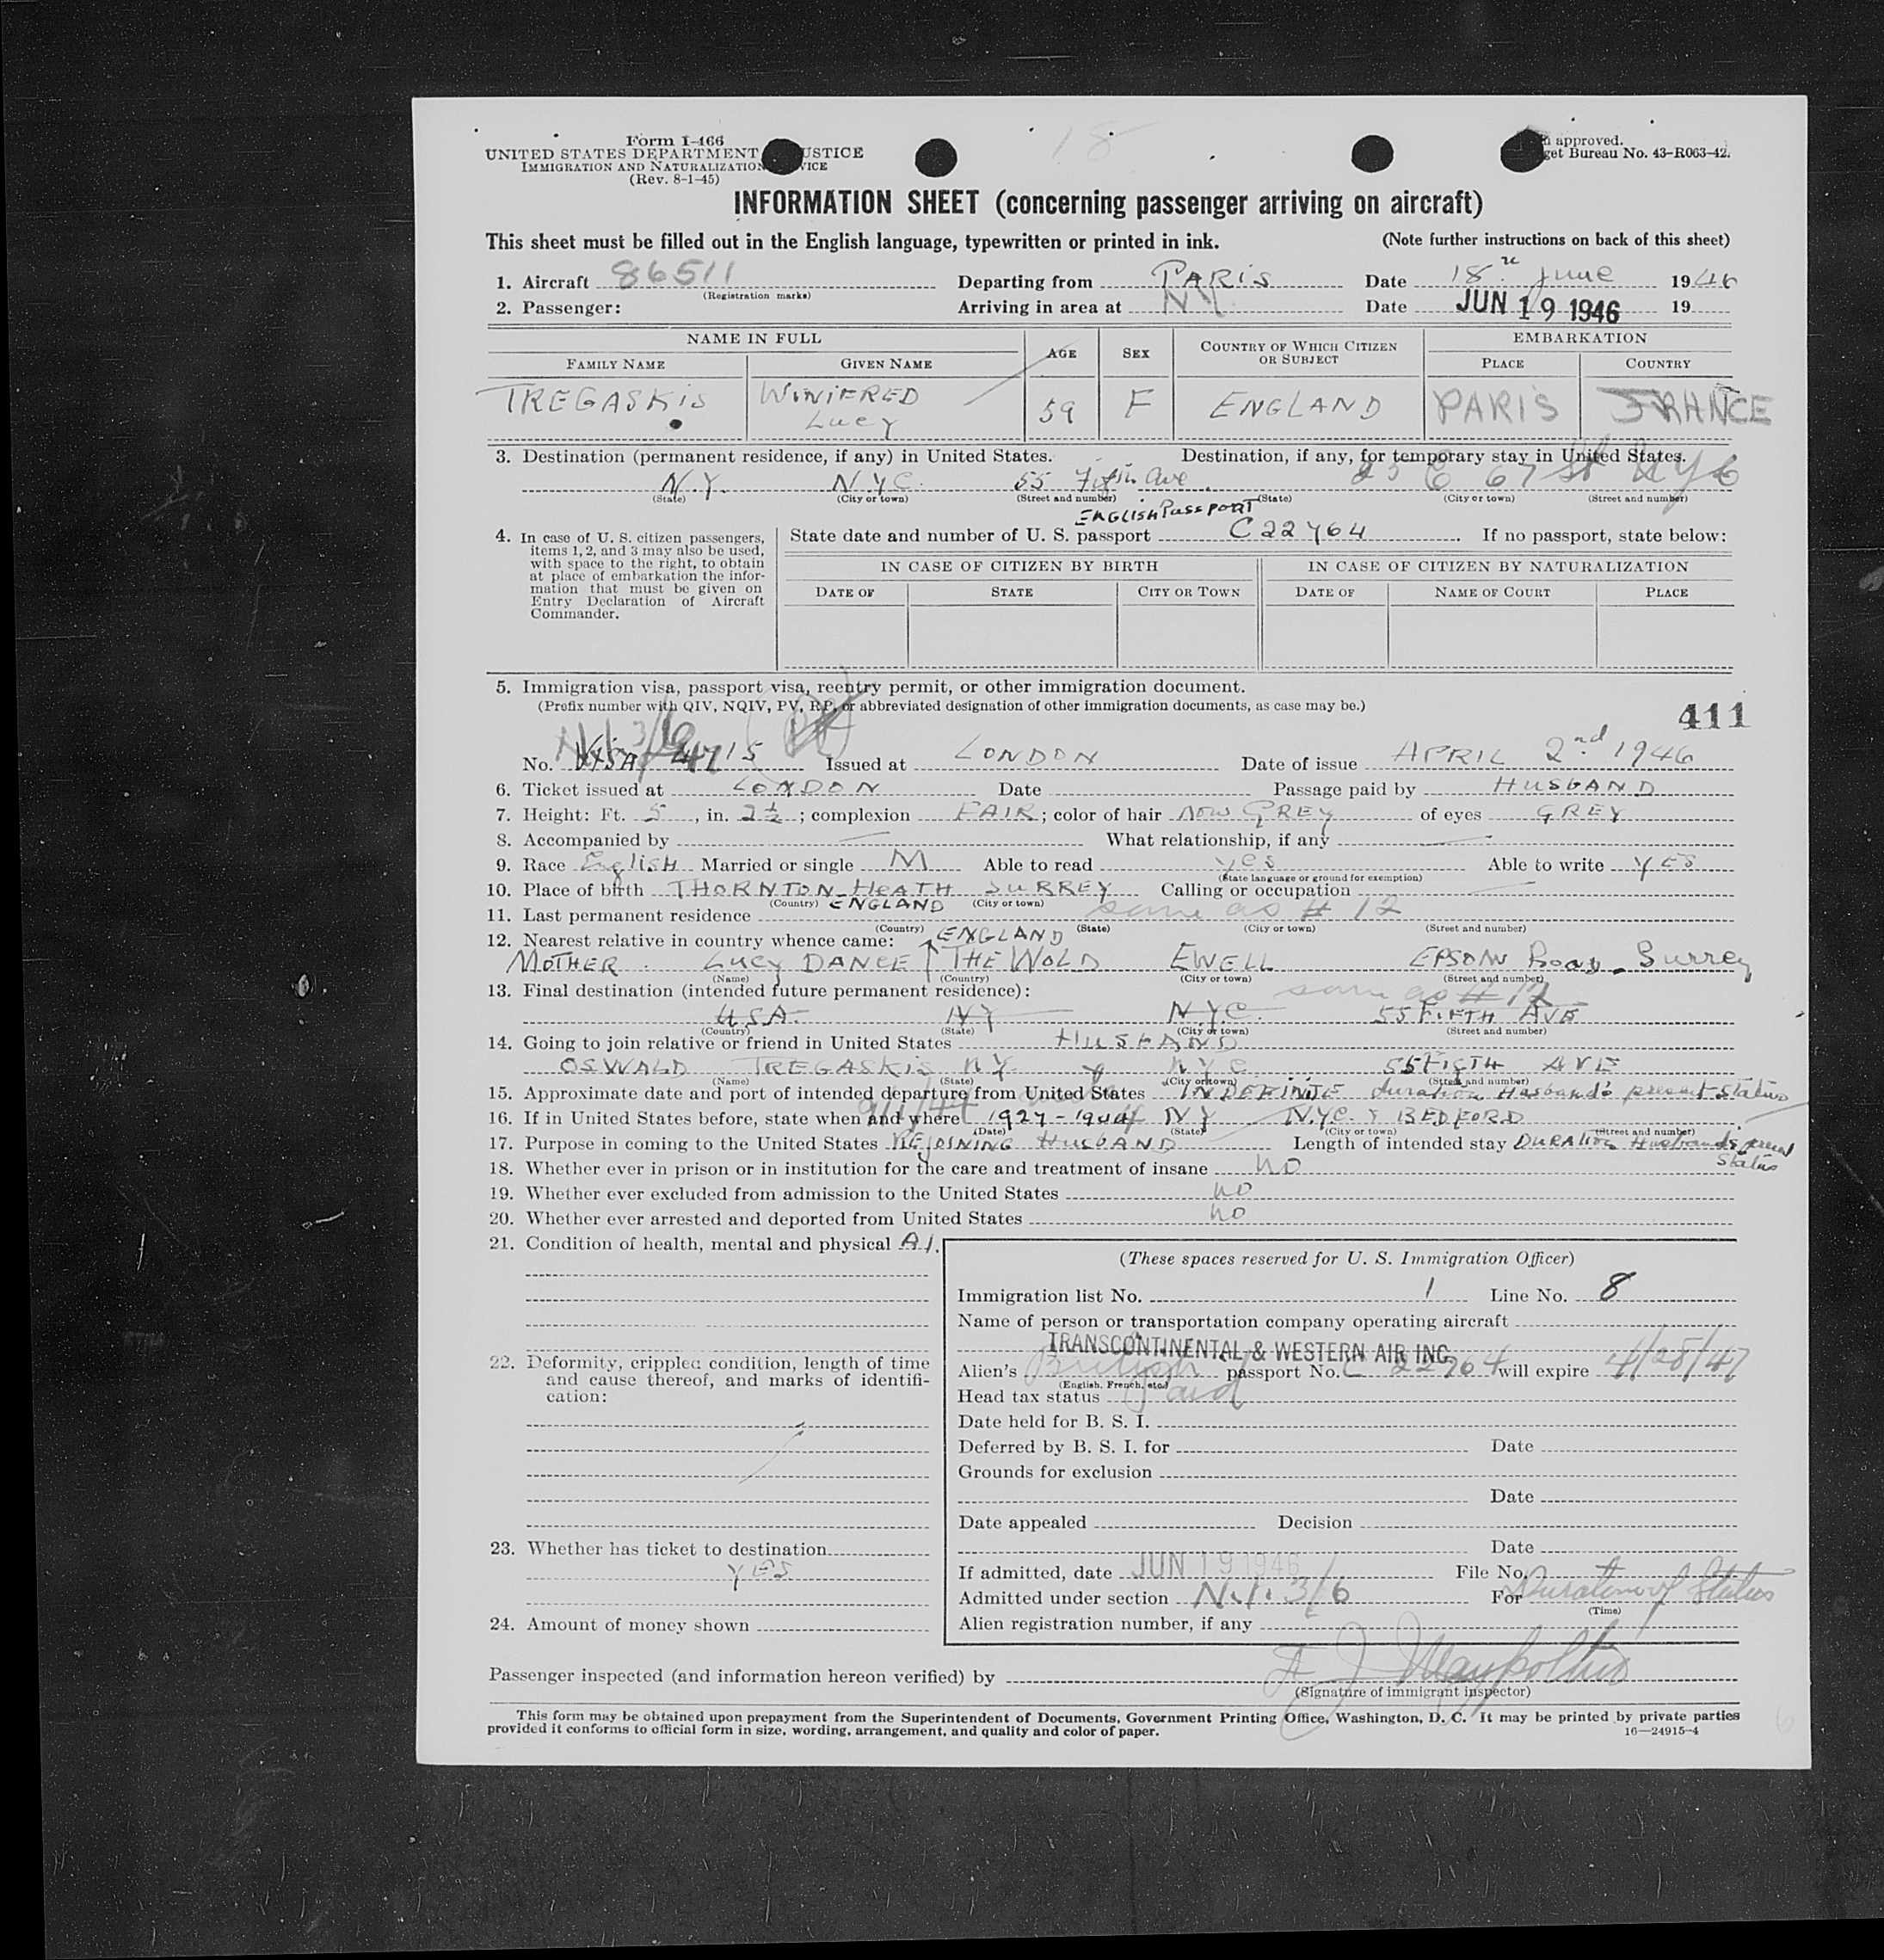 18
Form I-466
UNITED STATES DEPARTMENT USTICE
IMMIGRATION AND NATURALIZATION VICE
(Rev. 8-1-45)
approved.
get Bureau No. 43-R063-42.
INFORMATION SHEET (concerning passenger arriving on aircraft)
This sheet must be filled out in the English language, typewritten or printed in ink. (Note further instructions on back of this sheet)
1. Aircraft 86511 Departing from PARIS Date 18 June 1946
(Registration marks)
2. Passenger: Arriving in area at NY Date JUN 19 1946 19
NAME IN FULL AGE SEX COUNTRY OF WHICH CITIZEN OR SUBJECT EMBARKATION
FAMILY NAME GIVEN NAME PLACE COUNTRY
TREGASKIS WINIFRED Lucy 59 F ENGLAND PARIS FRANCE
3. Destination (permanent residence, if any) in United States. Destination, if any, for temporary stay in United States.
N.Y. N.Y.C. 55 Fifth Ave 23 E 67 St NYC
(State) (City or town) (Street and number) (State) (City or town) (Street and number)
ENGLISH PASSPORT
4. In case of U. S. citizen passengers, items 1, 2, and 3 may also be used, with space to the right, to obtain at place of embarkation the information that must be given on Entry Declaration of Aircraft Commander.
State date and number of U. S. passport C22764. If no passport, state below:
IN CASE OF CITIZEN BY BIRTH IN CASE OF CITIZEN BY NATURALIZATION
DATE OF STATE CITY OR TOWN DATE OF NAME OF COURT PLACE
5. Immigration visa, passport visa, reentry permit, or other immigration document.
(Prefix number with QIV, NQIV, PV, RP, or abbreviated designation of other immigration documents, as case may be.)
411
No. VISA 4715 Issued at LONDON Date of issue APRIL 2nd 1946
6. Ticket issued at LONDON Date Passage paid by HUSBAND
7. Height: Ft. 5, in. 2½; complexion FAIR; color of hair NOW GREY of eyes GREY
8. Accompanied by What relationship, if any
9. Race English Married or single M Able to read yes Able to write YES
(State language or ground for exemption)
10. Place of birth THORNTON HEATH SURREY Calling or occupation
(Country) ENGLAND (City or town)
11. Last permanent residence same as # 12
(Country) (State) (City or town) (Street and number)
12. Nearest relative in country whence came: ENGLAND
MOTHER. LUCY DANCE THE WOLD EWELL EPSOM Road. Surrey
(Name) (Country) (City or town) (Street and number)
13. Final destination (intended future permanent residence): same as # 12
USA. NY N.Y.C. 55 FIFTH AVE
(Country) (State) (City or town) (Street and number)
14. Going to join relative or friend in United States HUSBAND
OSWALD TREGASKIS NY NYC 55 FIFTH AVE
(Name) (State) (City or town) (Street and number)
15. Approximate date and port of intended departure from United States INDEFINITE duration Husband's present Status
16. If in United States before, state when and where 1927-1944 NY NYC & BEDFORD
(Date) (State) (City or town) (Street and number)
17. Purpose in coming to the United States REJOINING HUSBAND Length of intended stay DURATION Husband's present Status
18. Whether ever in prison or in institution for the care and treatment of insane NO
19. Whether ever excluded from admission to the United States no
20. Whether ever arrested and deported from United States no
21. Condition of health, mental and physical A1.
(These spaces reserved for U. S. Immigration Officer)
Immigration list No. 1 Line No. 8
Name of person or transportation company operating aircraft
TRANSCONTINENTAL & WESTERN AIR INC
22. Deformity, crippled condition, length of time and cause thereof, and marks of identification:
Alien's British passport No. C 22764 will expire 4/28/47
(English, French, etc.)
Head tax status paid
Date held for B. S. I.
Deferred by B. S. I. for Date
Grounds for exclusion
Date
Date appealed Decision
23. Whether has ticket to destination
YES
Date
If admitted, date JUN 19 1946 File No.
Admitted under section N.I. 3/6 For Duration of Status
(Time)
24. Amount of money shown
Alien registration number, if any
Passenger inspected (and information hereon verified) by
(Signature of immigrant inspector)
This form may be obtained upon prepayment from the Superintendent of Documents, Government Printing Office, Washington, D. C. It may be printed by private parties
provided it conforms to official form in size, wording, arrangement, and quality and color of paper. 16—24915-4